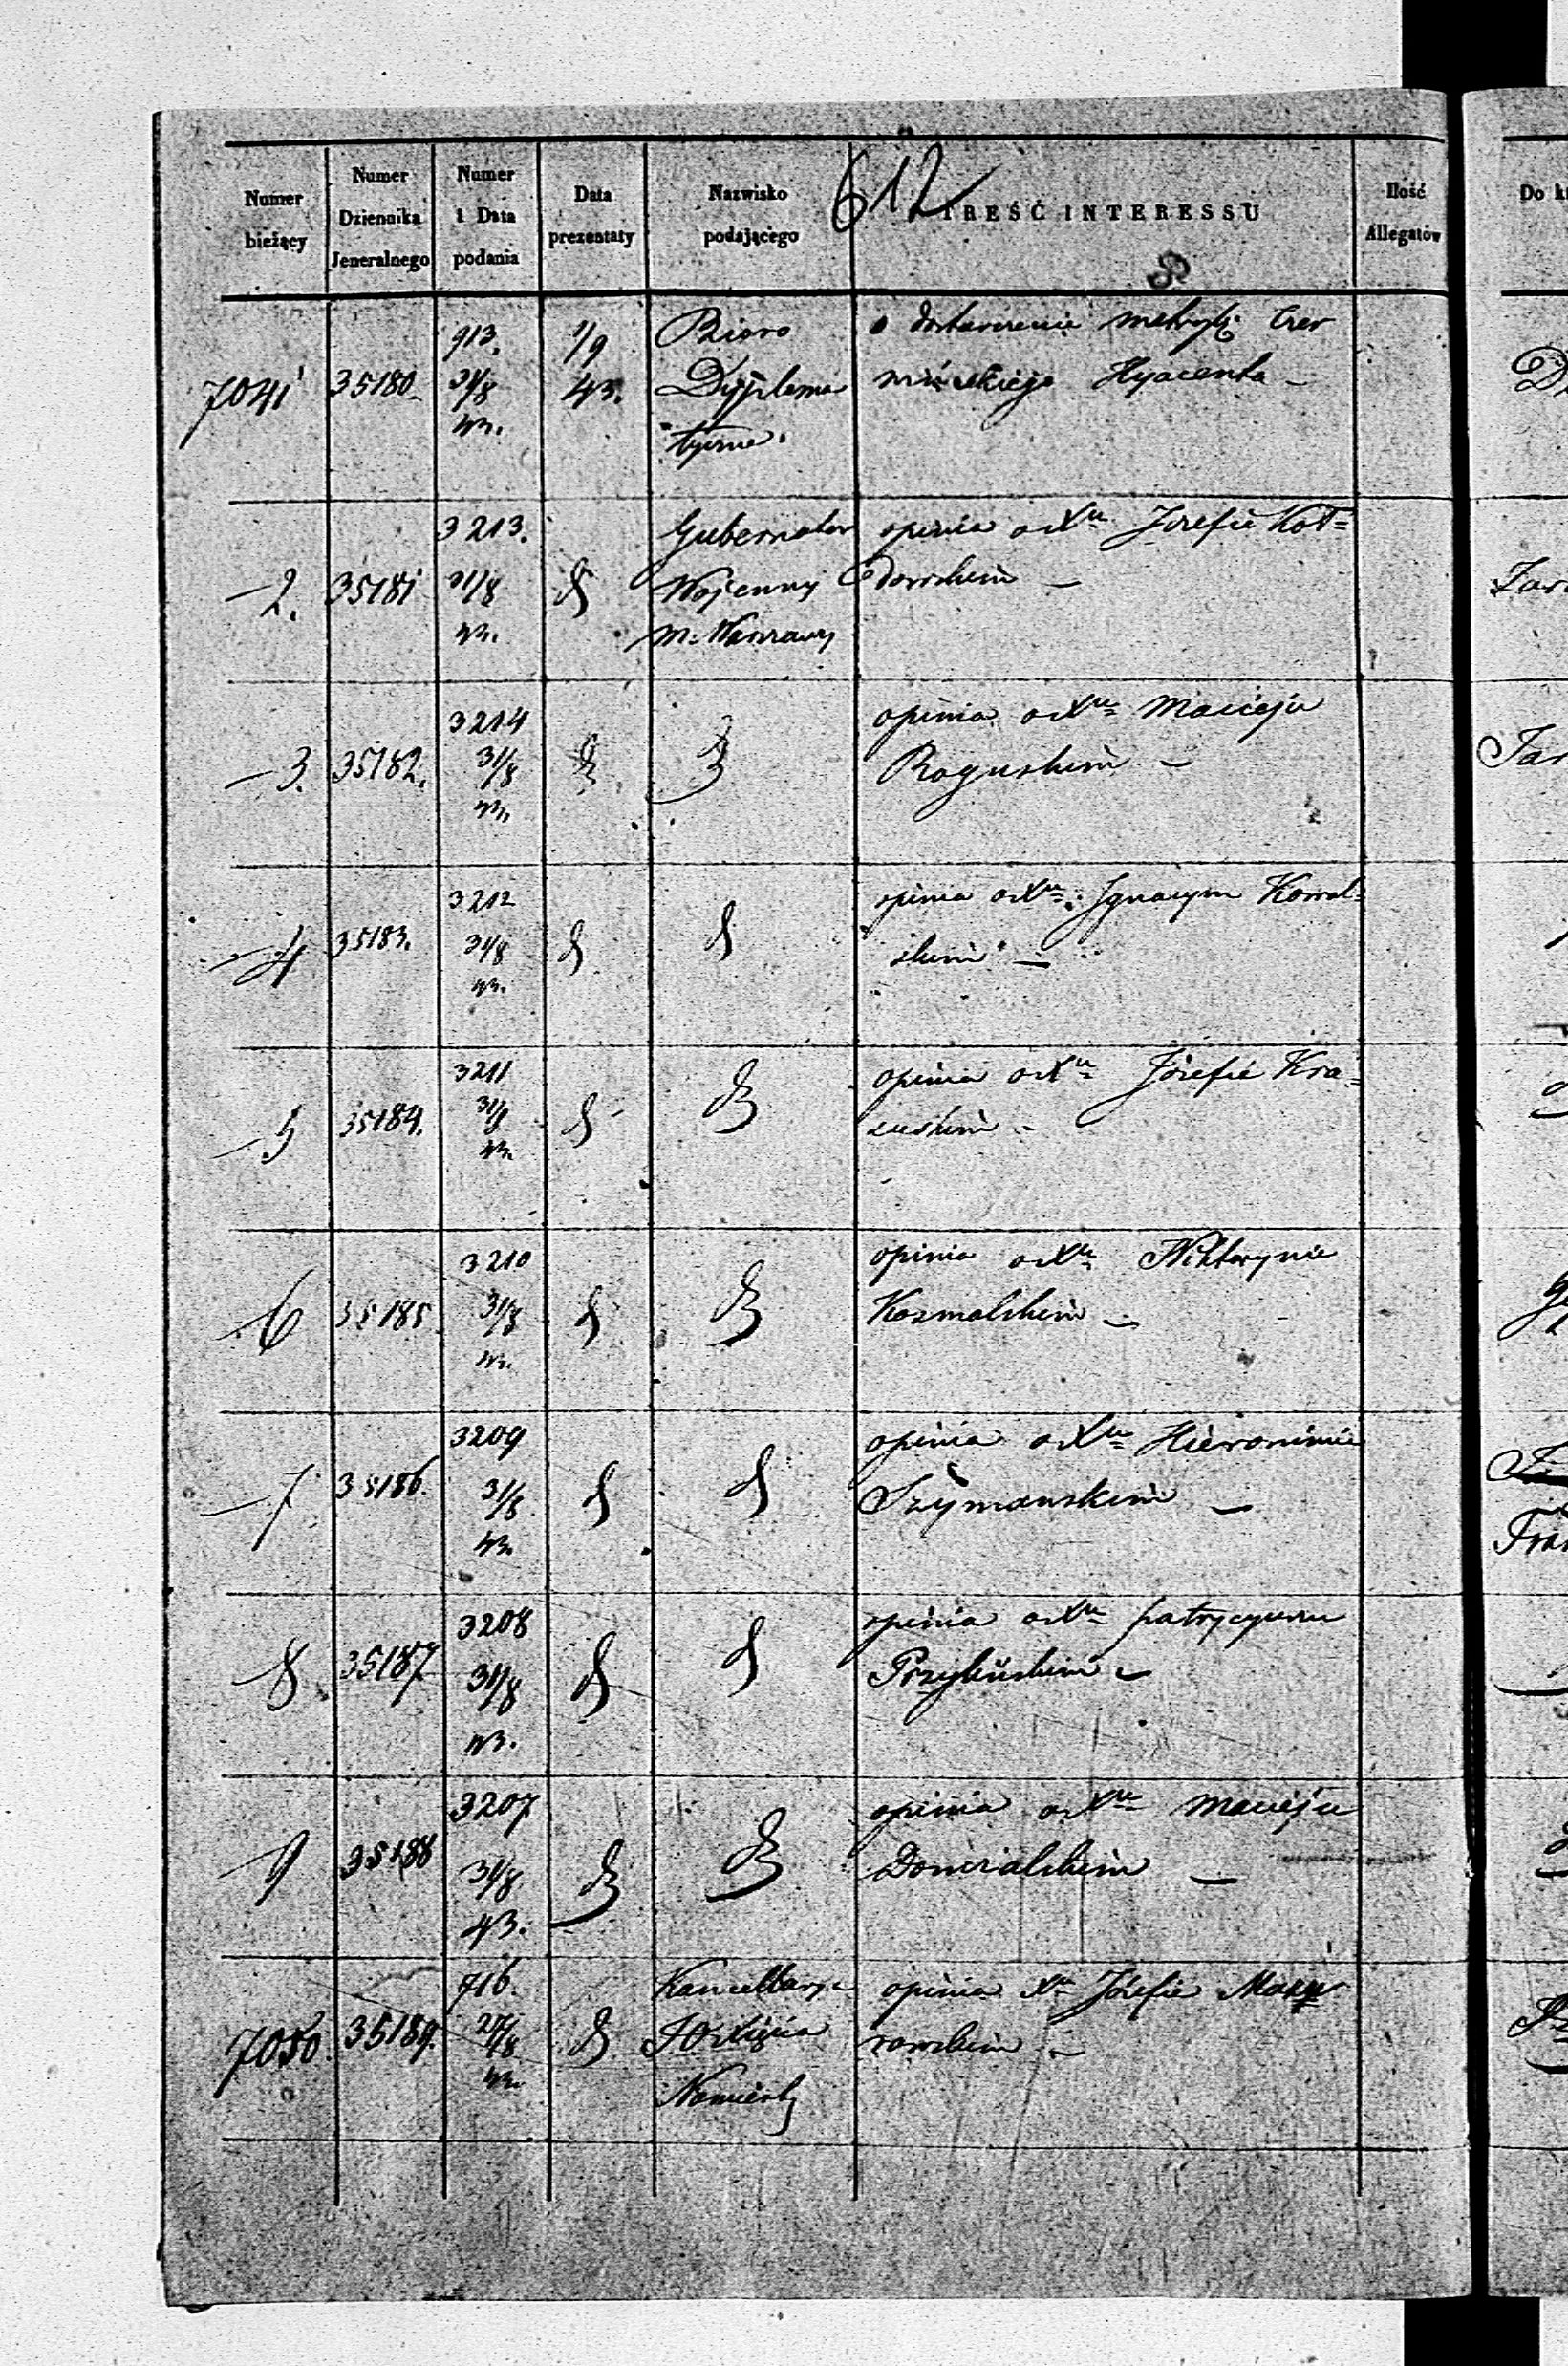 612
Numer bieżący
Numer Dziennika Jeneralnego
Numer i Data podania
Data prezentaty
Nazwisko podającego
TREŚĆ INTERESSU
Ilość Allegatów
7041
35180
913.
31/8
43.
1/9
43.
Bióro
Dyploma
tyczne.
o dostawienie metryki Czer
mińskiego Hyacenta –
2.
35181
3213.
31/8
43.
Gubernator
Wojenny
m. Warszawy
opinia o Xu Jozefie Kot=
dowskim –
3.
35182.
3214
31/8
43.
opinia o Xu Macieju
Roguskim –
4
35183.
3212
31/8
43.
opinia o Xu Ignacym Kowal=
skim –
5
35184.
3211
31/8
43.
opinia o Xu Józefie Kra=
suskim –
6
35185
3210
31/8
43.
opinia o Xu Wiktorynie
Kozmalskim –
7
35186.
3209
31/8
43.
opinia o Xu Hieronimie
Szymanskim –
8.
35187
3208
31/8
43.
opinia o Xu patrycyuszu
Przybuskim –
9
35188
3207
31/8
43.
opinia o Xu Macieju
Domzalskim –
7050
35189.
716.
27/8
43.
Kancellarya
JO Xięcia
Namiest
opinia Xu Józefie
rowskim –